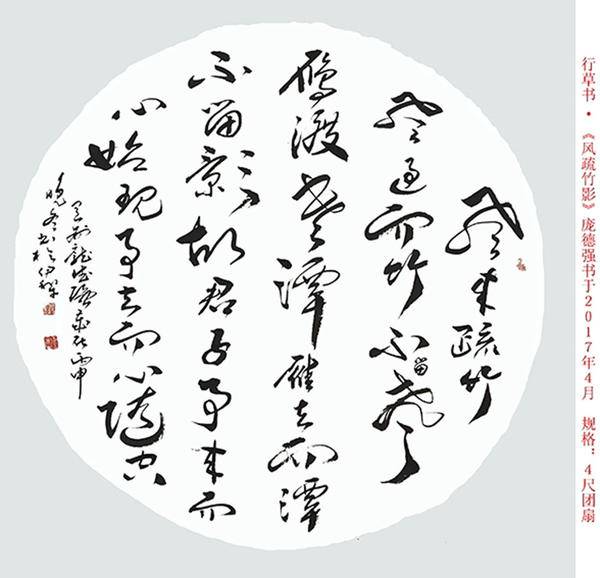 行草书·《风疏竹影》庞德强书于2017年4月 规格：4尺团扇
风来疏竹
风过而竹不留声
鴈渡寒潭雁去而潭
不留影故君子事来而
心始现事去而心随空
庞德强岁在丙申
晚冬书于伊犁